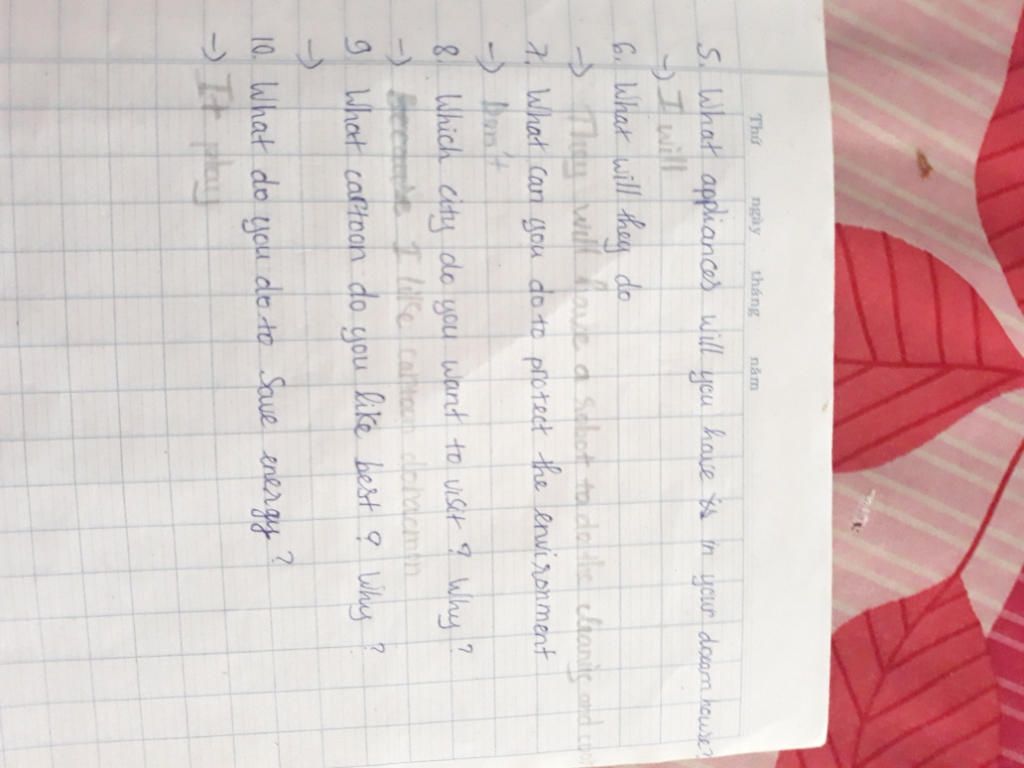 Thứ ngày tháng năm
5. What appliances will you have in your dream house?
-) I will
6. What will they do
-) They will have a robot to do the cleaning and
7. What can you do to protect the environment
-) Don't
8. Which city do you want to visit? Why?
-) I like cartoon
9. What cartoon do you like best? Why?
-)
10. What do you do to save energy?
-) It play